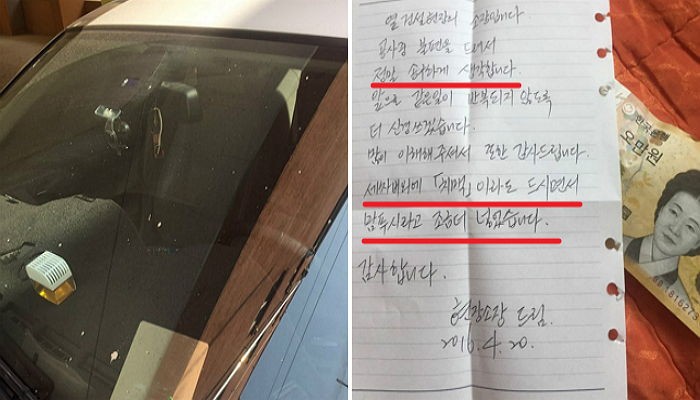 옆 건설현장의 소장입니다
공사중 불편을 드려서
정말 송구하게 생각합니다
앞으로 같은일이 반복되지 않도록
더 신경쓰겠습니다.
많이 이해해주셔서 또한 감사드립니다.
세차비외에 「치맥」이라도 드시면서
맘푸시라고 조금더 넣었습니다.
감사합니다.
현장소장 드림.
2016. 4. 20.
한국은행
오만원